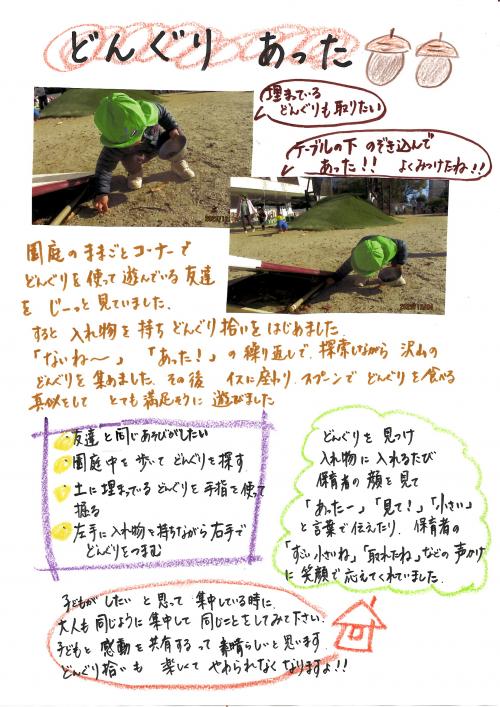 どんぐり あった
埋まっている
どんぐりも取りたい
テーブルの下 のぞき込んで
あった!! よくみつけたね!!
園庭のままごとコーナーで
どんぐりを使って遊んでいる友達
を じーっと見ていました.
すると 入れ物を持ちどんぐり拾いをはじめました.
「ないね～」 「あった!」の繰り返しで、探索しながら 沢山の
どんぐりを集めました. その後 イスに座わり、スプーンで どんぐりを食べる
真似をして とても満足そうに 遊びました
友達と同じあそびがしたい
園庭中を歩いて どんぐりを探す
土に埋まっているどんぐりを手指を使って
掘る
左手に入れ物を持ちながら右手で
どんぐりをつまむ
どんぐりを 見つけ
入れ物に入れるたび
保育者の顔を見て
「あった～」「見て!」「小さい」
と言葉で伝えたり、保育者の
「すごい小さいね」「取れたね」などの声かけ
に笑顔で応えてくれていました.
子どもがしたいと思って集中している時に、
大人も同じように集中して同じことをしてみて下さい.
子どもと感動を共有するって素晴らしいと思います.
どんぐり拾いも 楽しくて やめられなくなりますよ!!